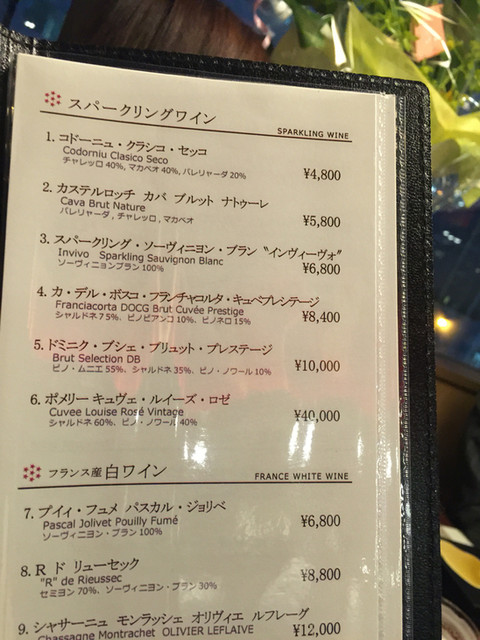 スパークリングワイン
SPARKLING WINE
1. コドーニュ・クラシコ・セッコ
Codorniu Clasico Seco
チャレッロ 40%, マカベオ 40%, パレリャーダ 20%
¥4,800
2. カステルロッチ カバ ブルット ナトゥーレ
Cava Brut Nature
パレリャーダ , チャレッロ , マカベオ
¥5,800
3. スパークリング・ソーヴィニヨン・ブラン〝インヴィーヴォ〟
Invivo Sparkling Sauvignon Blanc
ソーヴィニョンブラン 100%
¥6,800
4. カ・デル・ボスコ・フランチャコルタ・キュベプレンテージ
Franciacorta DOCG Brut Cuvée Prestige
シャルドネ75%、ピノビアンコ 10%、ピノネロ 15%
¥8,400
5. ドミニク・ブシェ・ブリュット・プレステージ
Brut Selection DB
ピノ・ムニエ 55%、シャルドネ 35%、ピノ・ノワール 10%
¥10,000
6. ポメリー キュヴェ・ルイーズ・ロゼ
Cuvee Louise Rosé Vintage
シャルドネ 60%、ピノ・ノワール 40%
¥40,000
フランス産 白ワイン
FRANCE WHITE WINE
7. プイィ・フュメ パスカル・ジョリベ
Pascal Jolivet Pouilly Fumé
ソーヴィニヨン・ブラン 100%
¥6,800
8. R ド リューセック
"R" de Rieussec
セミヨン 70%、ソーヴィニヨン・ブラン 30%
¥8,800
9. シャサーニュ モンラッシェ オリヴィエ ルフレーグ
Chassagne Montrachet OLIVIER LEFLAIVE
¥12,000